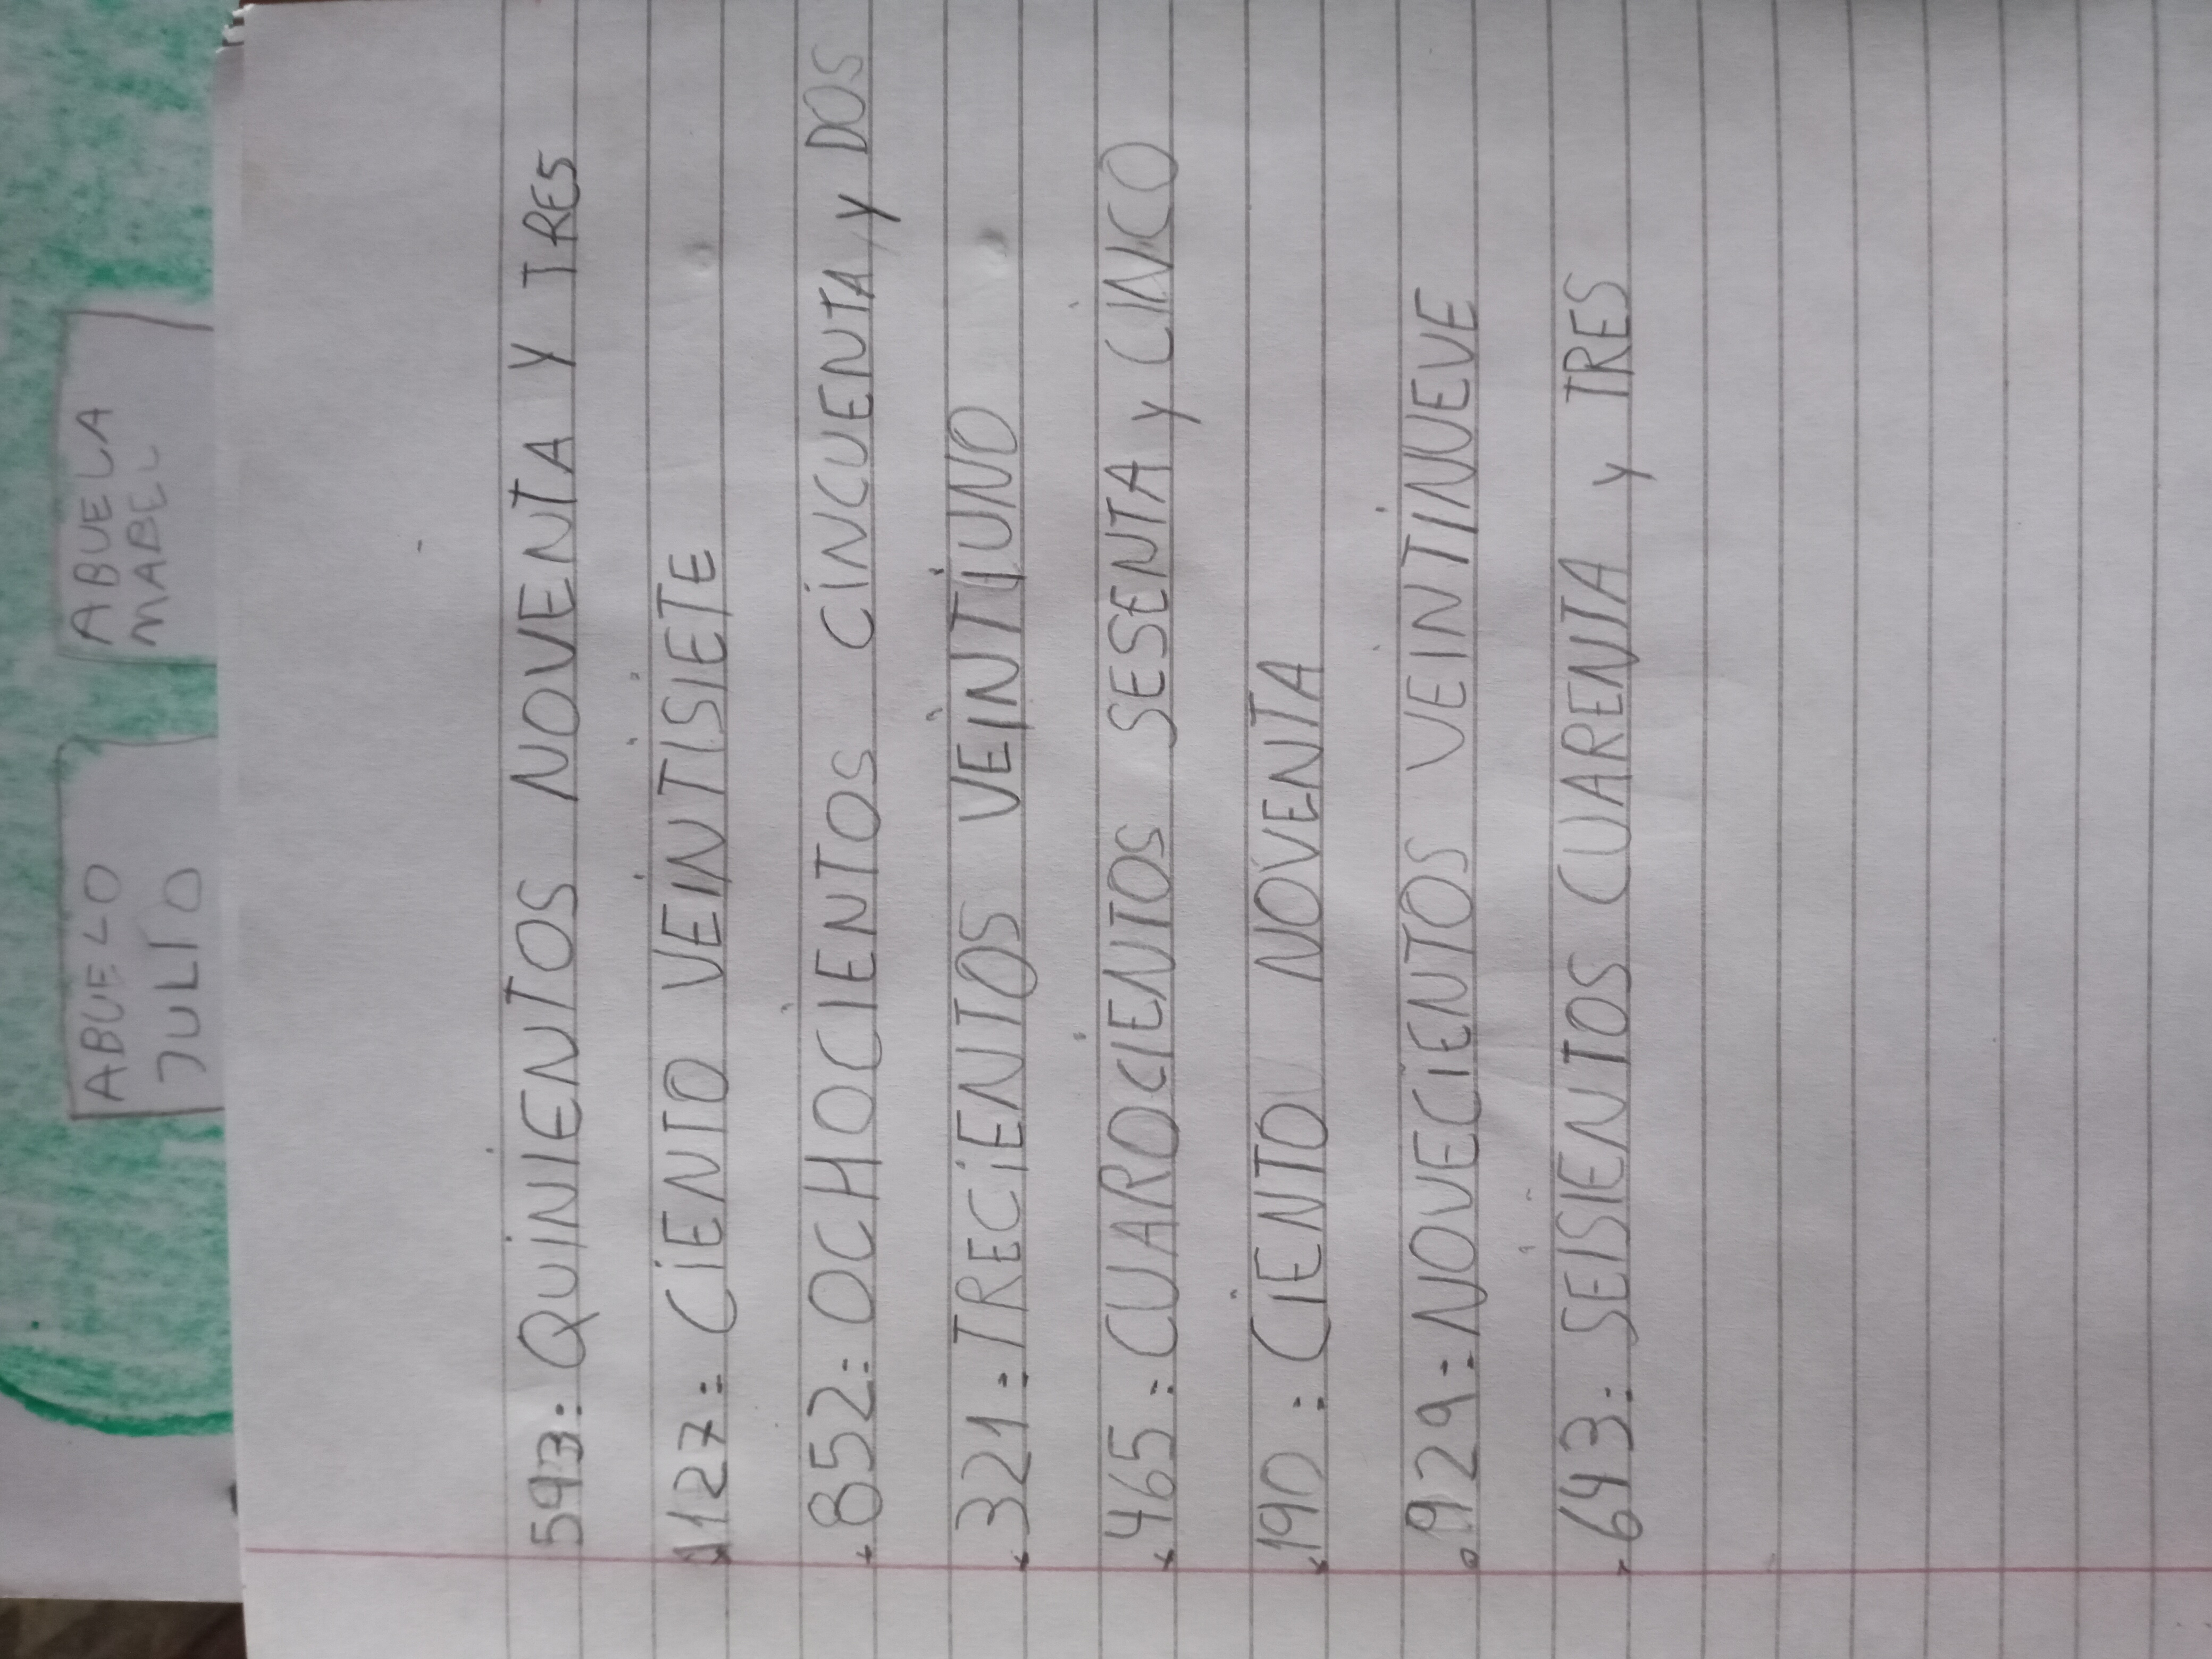 ABUELO
JULIO
ABUELA
MABEL
593: QUINIENTOS NOVENTA Y TRES
127: CIENTO VEINTISIETE
852: OCHOCIENTOS CINCUENTA y DOS
321: TRECIENTOS VEINTIUNO
465: CUAROCIENTOS SESENTA y CINCO
190: CIENTO NOVENTA
929: NOVECIENTOS VEINTINUEVE
643: SEISIENTOS CUARENTA y TRES